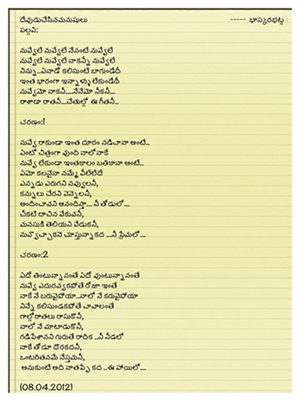 దేవుడుచేసినమనుషులు ----- భాస్కరభట్ల
పల్లవి:
నువ్వేలే నువ్వేలే నేనంటే నువ్వేలే
నువ్వేలే నువ్వేలే నాకన్నీ నువ్వేలే
నిన్ను...ఏనాడో కలిసుంటే బాగుండేదీ
ఇంత భారంగా ఇన్నాళ్ళు లేకుండేదీ
నువ్వేమో నాకనీ....నేనేమో నీకనీ...
రాశాడా రాతనీ...చేతుల్లో ఈ గీతనీ..
చరణం:1
నువ్వే రాకుండా ఇంత దూరం నడిచానా అంటే..
ఏంటో చిత్రంగా వుంది నాలోనాకే
నువ్వే లేకుండా ఇంతకాలం బతికానా అంటే..
ఏమో కలనైనా నమ్మే వీలేలేదే
ఎన్నడు ఎరుగని నవ్వులనీ,
కన్నులు చేరని వెన్నెలనీ,
అందించావని ఆనందిస్తా... నీ తోడులో...
చీకటి దాచిన వేకువనీ,
మనసుకి తెలియని వేడుకనీ,
నువ్వొచ్చాకనే చూస్తున్నా కద ...నీ ప్రేమలో...
చరణం:2
ఏదో తింటున్నానంతే ఏదో వుంటున్నానంతే
నువ్వే ఎదురవ్వకపోతే రోజూ ఇంతే
నాకే నే బరువైపోయా...నాలో నే కరువైపోయా
నిన్నే కలిసుండకపోతే చాలాంతే
గాల్లో రాతలు రాసుకొనీ,
నాలో నే మాటాడుకొనీ,
గడిపేశానని గురుతే రాదిక ...నీ నీడలో
నాకే తోడూ దొరకదనీ,
ఒంటరితనమే నేస్తమనీ,
అనుకుంటే అది నాతప్పే కద ..ఈ హాయిలో...
(08.04.2012)